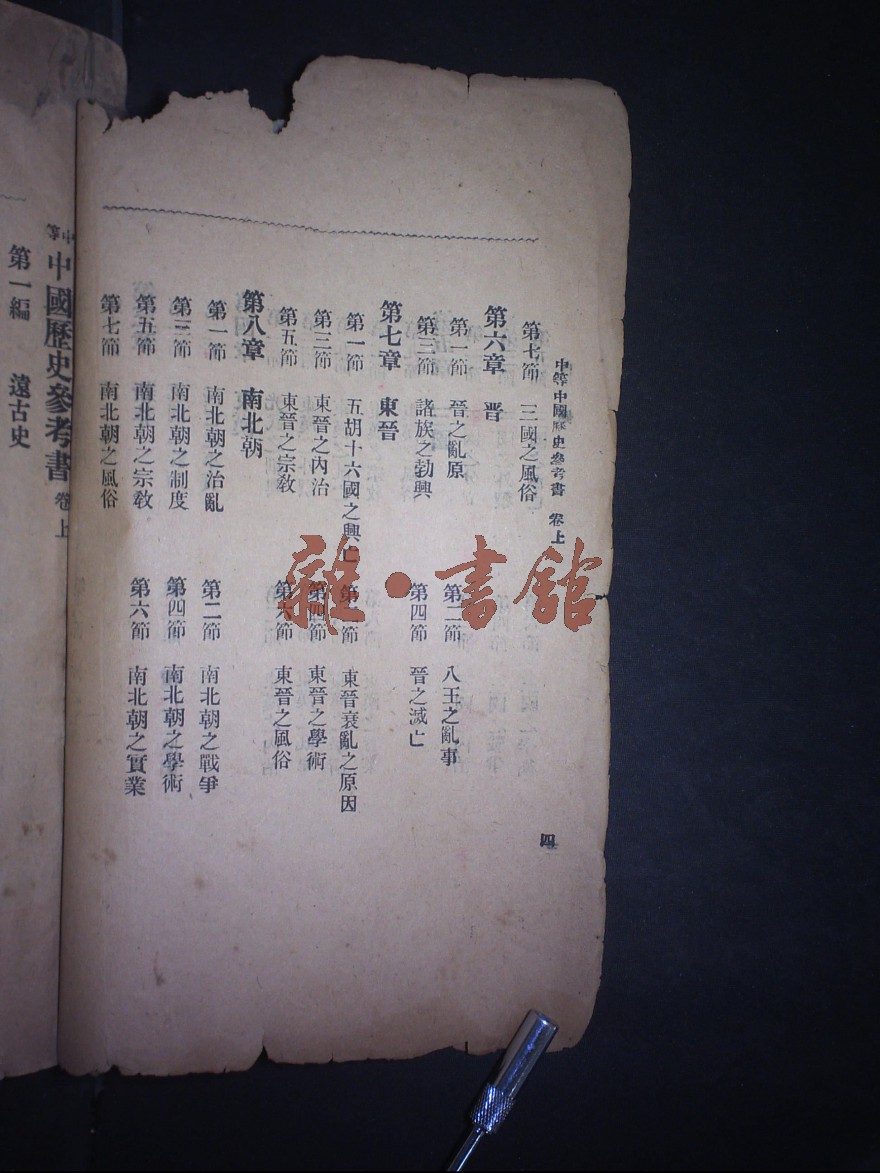 中等中國歷史參考書　卷上
四
第七節　三國之風俗
第六章　晉
第一節　晉之亂原　第二節　八王之亂事
第三節　諸族之勃興　第四節　晉之滅亡
第七章　東晉
第一節　五胡十六國之興亡　第二節　東晉衰亂之原因
第三節　東晉之內治　第四節　東晉之學術
第五節　東晉之宗教　第六節　東晉之風俗
第八章　南北朝
第一節　南北朝之治亂　第二節　南北朝之戰爭
第三節　南北朝之制度　第四節　南北朝之學術
第五節　南北朝之宗教　第六節　南北朝之實業
第七節　南北朝之風俗
中等中國歷史參考書　卷上
第一編　遠古史
雜·書館